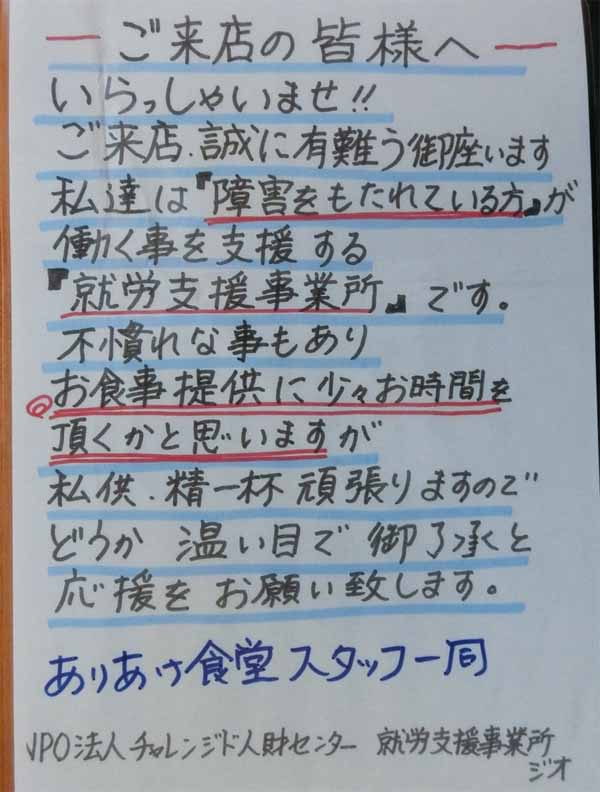 ご来店の皆様へ
いらっしゃいませ!!
ご来店、誠に有難う御座います
私達は『障害をもたれている方』が
働く事を支援する
『就労支援事業所』です。
不慣れな事もあり
◎お食事提供に少々お時間を
頂くかと思いますが
私供、精一杯頑張りますので
どうか 温い目で 御了承と
応援を お願い致します。
ありあけ食堂スタッフ一同
NPO法人チャレンジド人財センター 就労支援事業所
ジオ